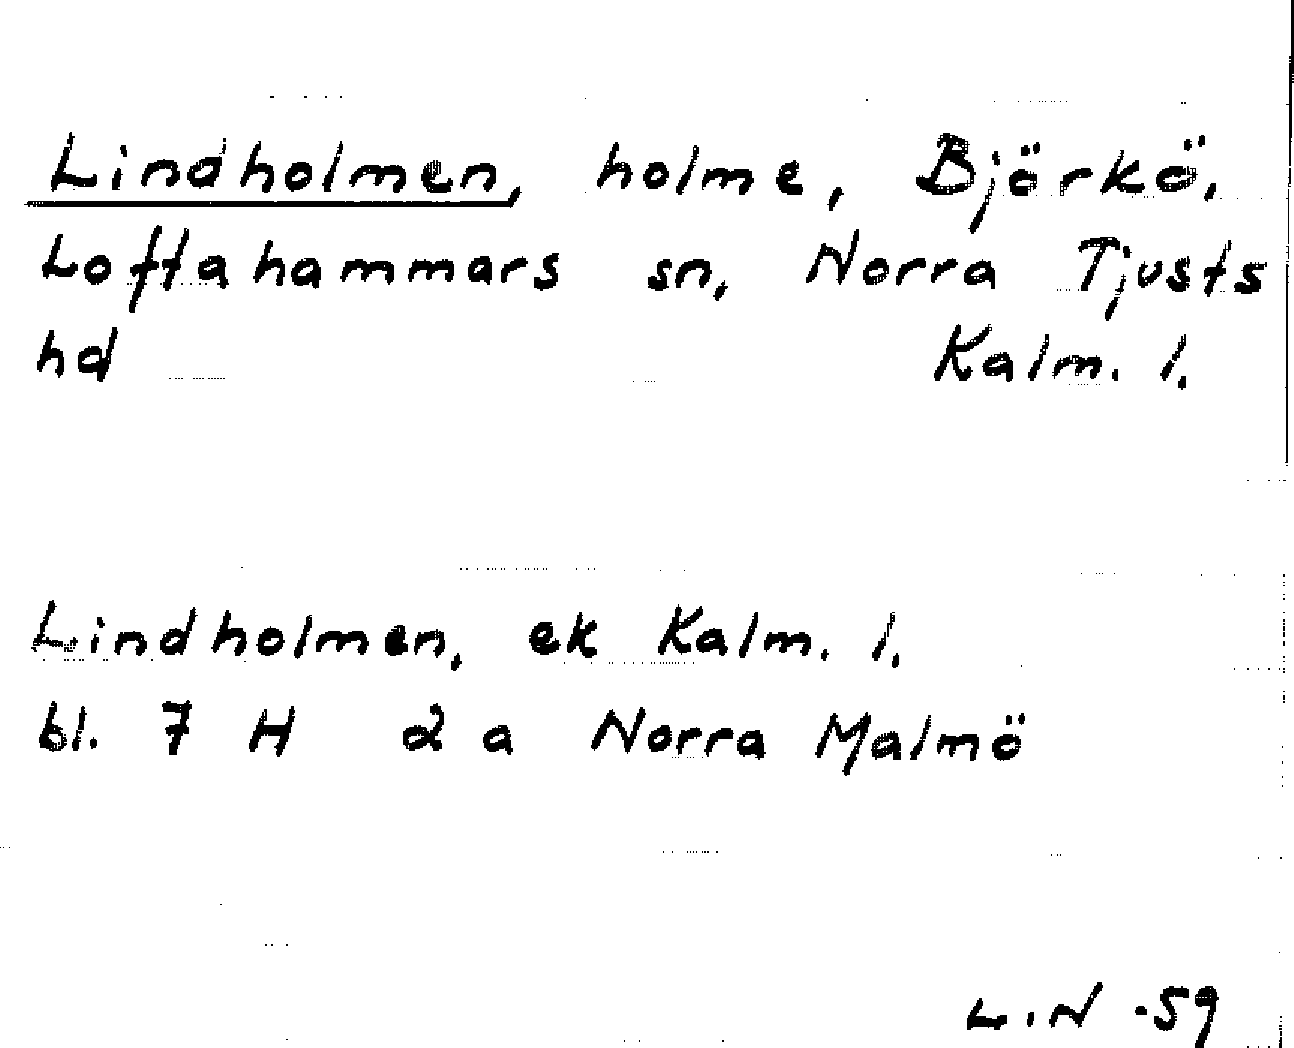 Lindholmen, holme, Björkö,
Loftahammars sn, Norra Tjusts
hd Kalm. l.
Lindholmen, ek Kalm. l.
bl. 7 H 2 a Norra Malmö
L.N -59